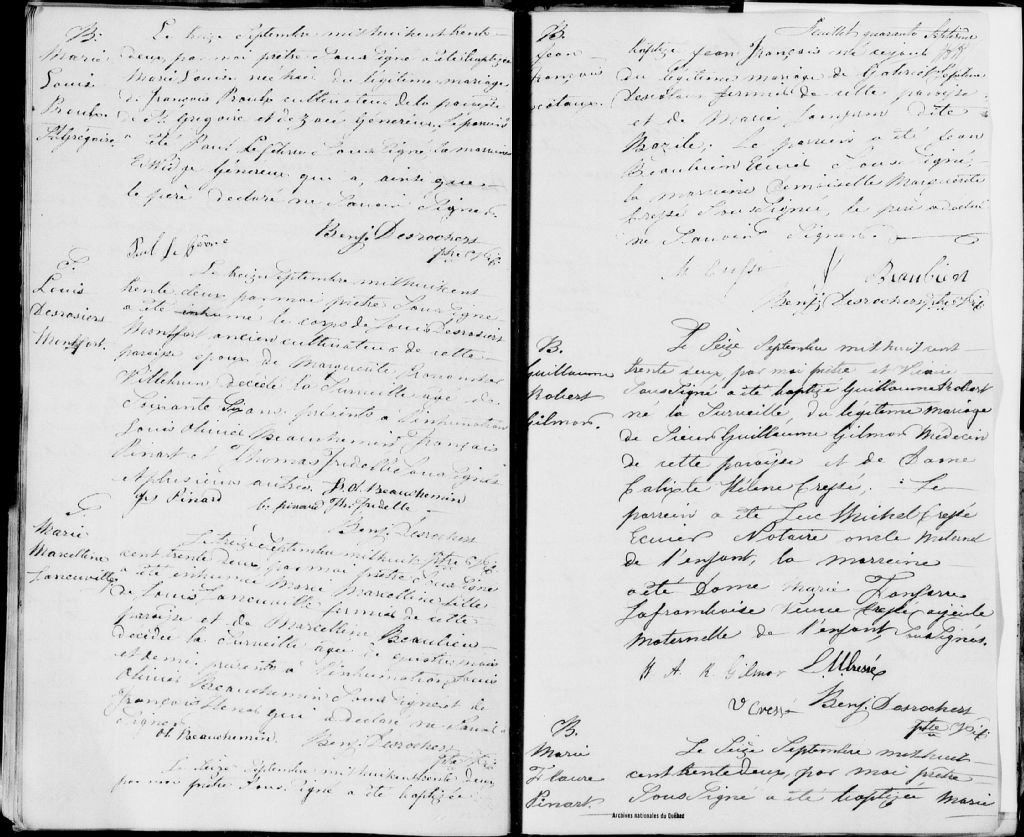 B.
Marie
Louise
Proulx
St Grégoire.
Le treize Septembre mil huit cent trente-
deux, par moi prêtre Sous Signé a été baptizée
Marie Louise née hier du légitime mariage
de François Proulx cultivateur de la paroisse
de St. Grégoire et de Zoé Généreux. Le parrain
a été Paul Lefebvre Sous Signé, la marraine
Edwidge Généreux qui a, ainsi que
le père déclaré ne Savoir Signer.
Benj. Desrochers
ptre Vic.
S.
Louis
Desrosiers
Montfort.
Le treize Septembre mil huit cent
trente deux par moi prêtre Sous Signé
a été inhumé le corps de Louis Desrosiers
Montfort ancien cultivateur de cette
paroisse époux de Marguerite
décédé la Surveille agé de
Soixante Six ans. présents a l'inhumation
Louis Olivier Beauchemin François
Pinart et Thomas Fredette Sous Signés
& plusieurs autres. L. O. Beauchemin
frs Pinard
Ths fredette
Benj. Desrochers
ptre Vic.
S.
Marie
Marcelline
Laneuville
Le treize Septembre mil huit
cent trente deux par moi prêtre Sous Signé
a été inhumée Marie Marcelline fille
de Louis Laneuville fermier de cette
paroisse et de Marcelline Beaulieu
décédée la Surveille agée de quatre mois
et demi, présents à l'inhumation Louis
Olivier Beauchemin Sous Signé et de
François qui a déclaré ne Savoir
Signer.
Ol. Beauchemin.
Benj. Desrochers
ptre Vic
Le Seize Septembre mil huit cent trente deux
par moi prêtre Sous Signé a été baptizé
Feuillet quarante Septième
B.
Jean
François
baptizé Jean François né ce jour
du légitime mariage de Gabriel
fermier de cette paroisse
et de Marie dite
Bazile; Le parrein a été Jean
Beaubien Ecuier Sous Signé,
la marraine Demoiselle Marguerite
Cressé Sous Signé, le père a déclaré
ne Sauvoir Signer.
M Cressé
Beaubien
Benj. Desrochers ptre Vic
B.
Guillaume
Robert
Gilmor.
Le Seize Septembre mil huit cent
trente deux par moi prêtre et Vicaire
Sous Signé a été baptizé Guillaume Robert
né la Surveille du légitime mariage
de Sieur Guillaume Gilmor Médecin
de cette paroisse et de Dame
Calixte Hélène Cressé; Le
parrein a été Luc Michel Cressé
Ecuier Notaire oncle Maternel
de l'enfant, la marreine
a été Dame Marie
Laframboise Veuve Cressé ayeule
Maternelle de l'enfant, Sousignés.
R. Gilmor L M Cressé
V Cressé Benj. Desrochers
ptre Vic.
B.
Marie
Flavie
Pinart.
Le Seize Septembre mil huit
cent trente deux, par moi prêtre
Sous Signé a été baptizée Marie
Archives nationales du Québec